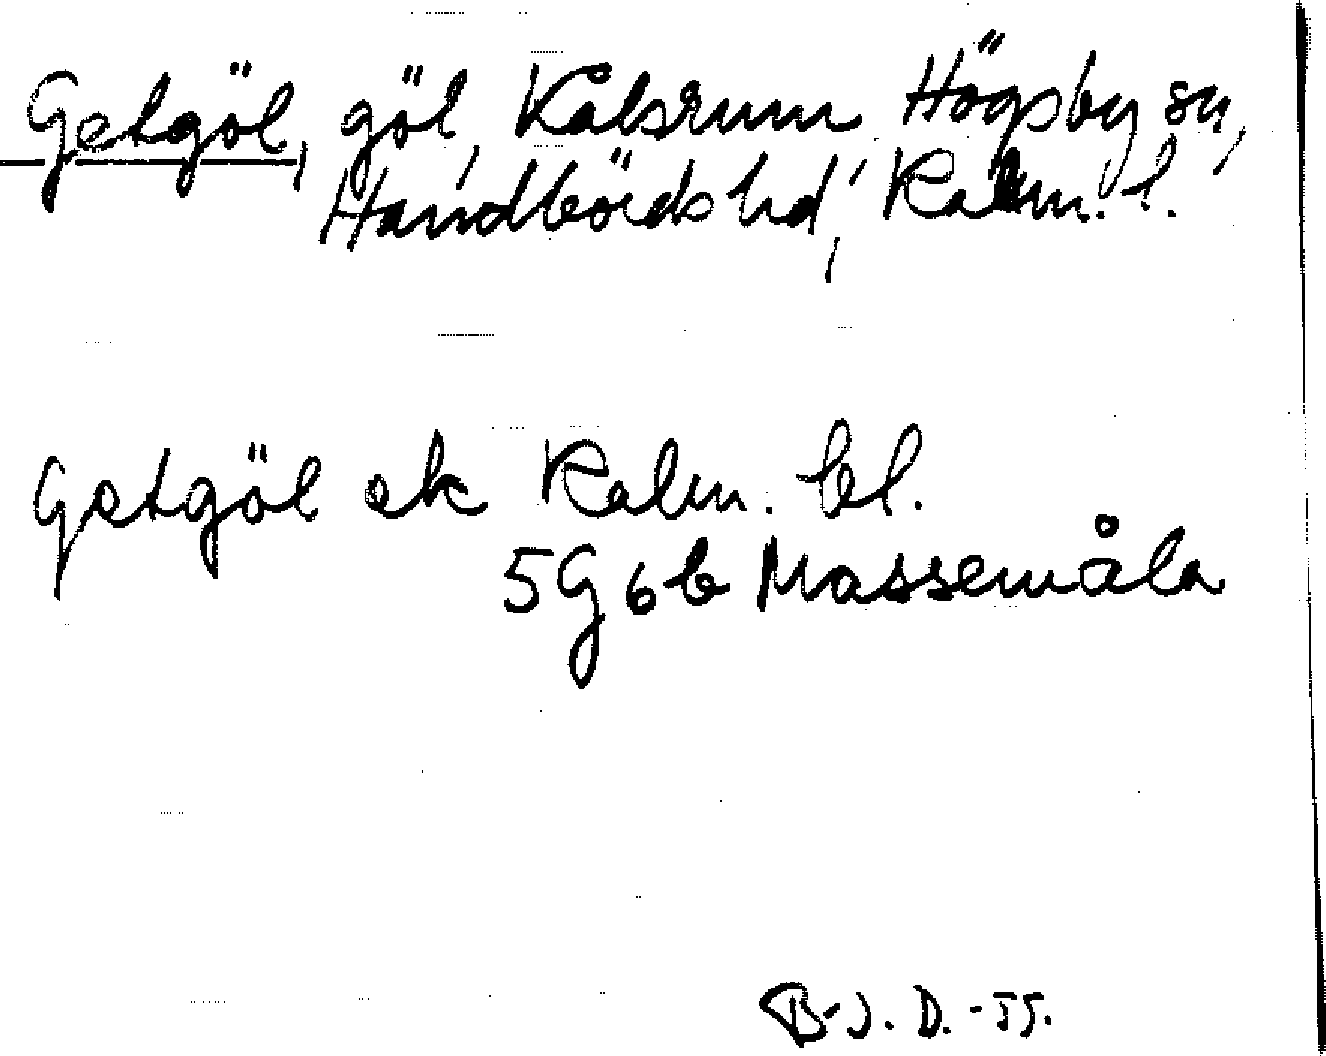 Getgöl, göl, Kalsrum, Högsby sn,
Handbörds hd, Kalm. l.
Getgöl ek Kalm. bl.
5G6b Massemåla
B-J. D. -55.